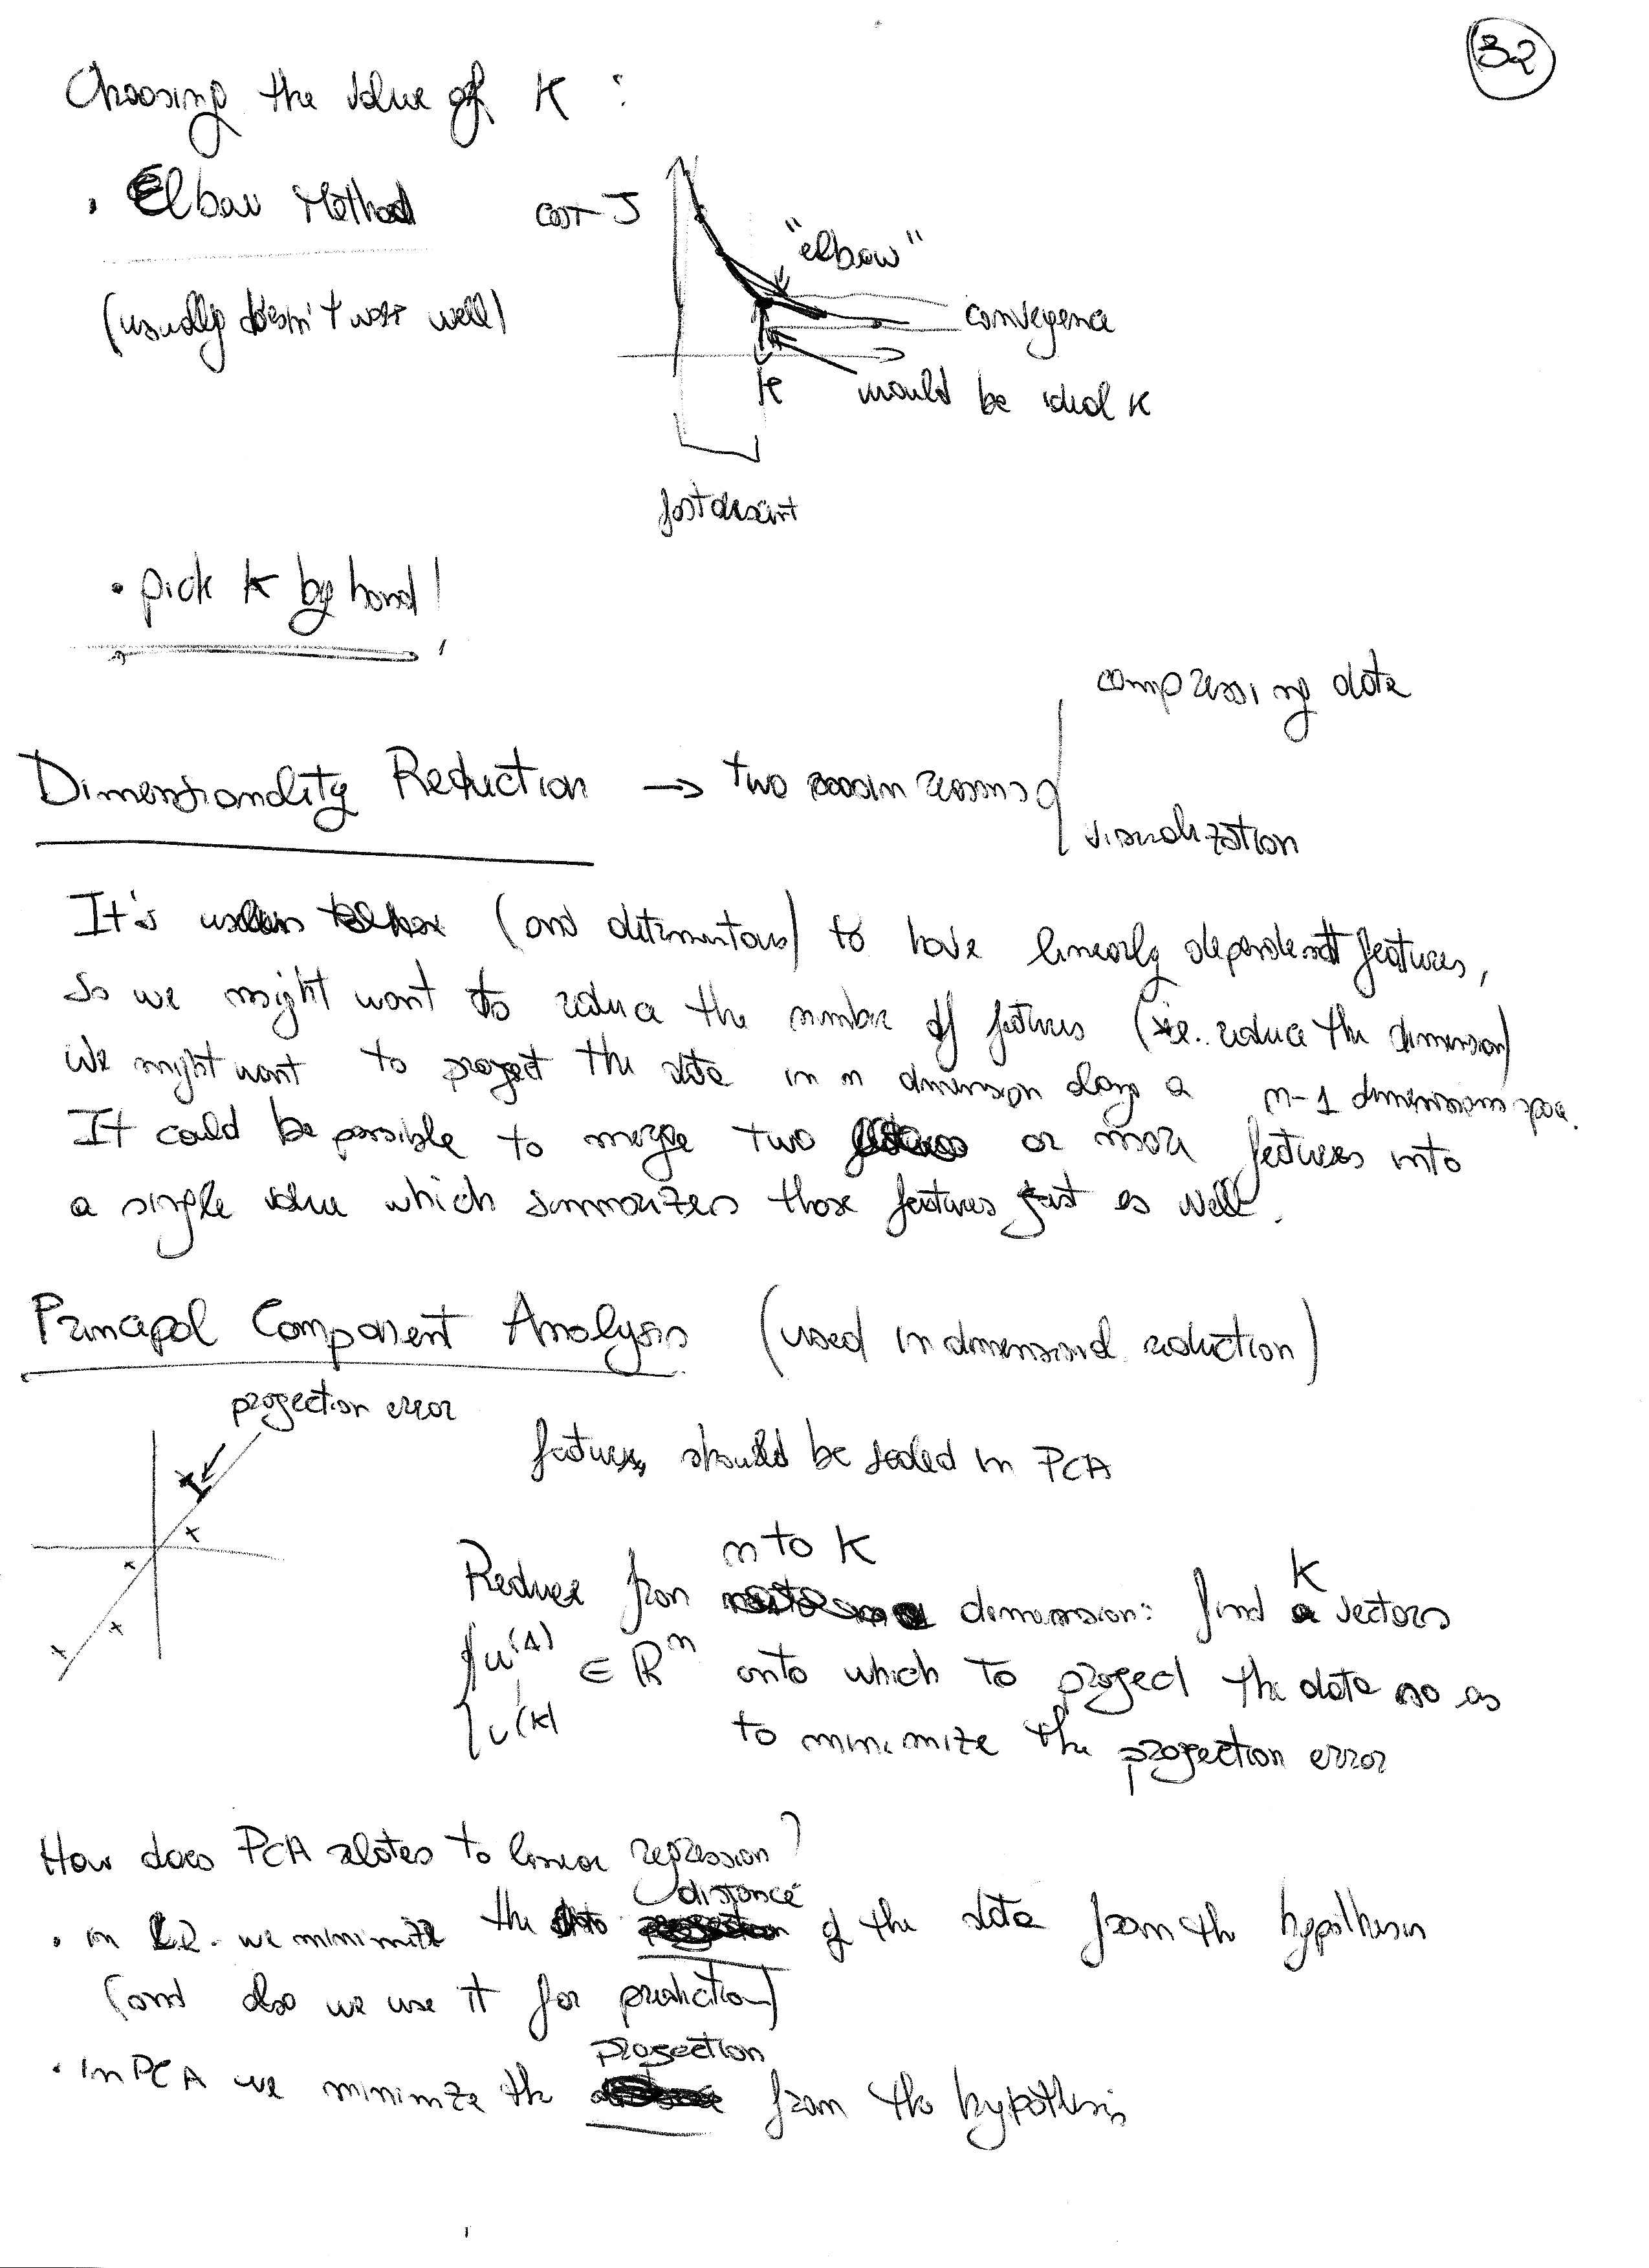 32
Choosing the value of K :
• Elbow Method
cost J
"elbow"
(usually doesn't work well)
convegence
K
would be ideal K
fast descent
• pick K by hand!
compressing data
Dimensionality Reduction → two main reasons
visualization
It's useless (and detrimentous) to have linearly dependent features,
so we might want to reduce the number of features (i.e. reduce the dimension)
We might want to project the data in n dimension along a n-1 dimensions space.
It could be possible to merge two or more features into
a single value which summarizes those features just as well.
Principal Component Analysis (used in dimensional reduction)
projection error
features should be scaled in PCA
n to K
K
Reduce from dimension: find vectors
u(1) ∈ ℝⁿ onto which to project the data so as
u(K) to minimize the projection error
How does PCA relates to linear regression?
distance
• in L.R. we minimize the of the data from the hypothesis
(and also we use it for prediction)
projection
• In PCA we minimize the from the hypothesis